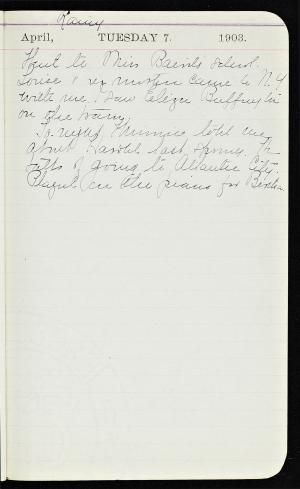 Rainy
April, TUESDAY 7. 1903.
Went to Miss Baird's school.
Louise & her mother came to N.Y
with me. I saw Eliza Buffington
on the train.
To night Mummie told me
about last spring. He
talks of going to Atlantic City.
Played on the piano for